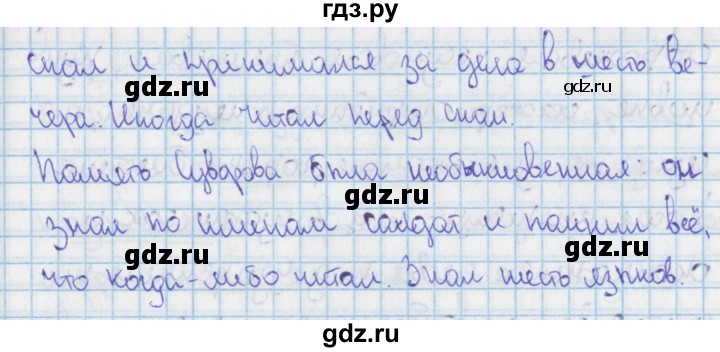 гдз.ру
спал и принимался за дела в шесть ве-
gdz.ru gdz.ru
чера. Иногда читал перед сном.
gdz.ru
Память Суворова была необыкновенная: он
gdz.ru gdz.ru
знал по именам солдат и помнил всё,
gdz.ru gdz.ru
что когда-либо читал. Знал шесть языков.
gdz.ru